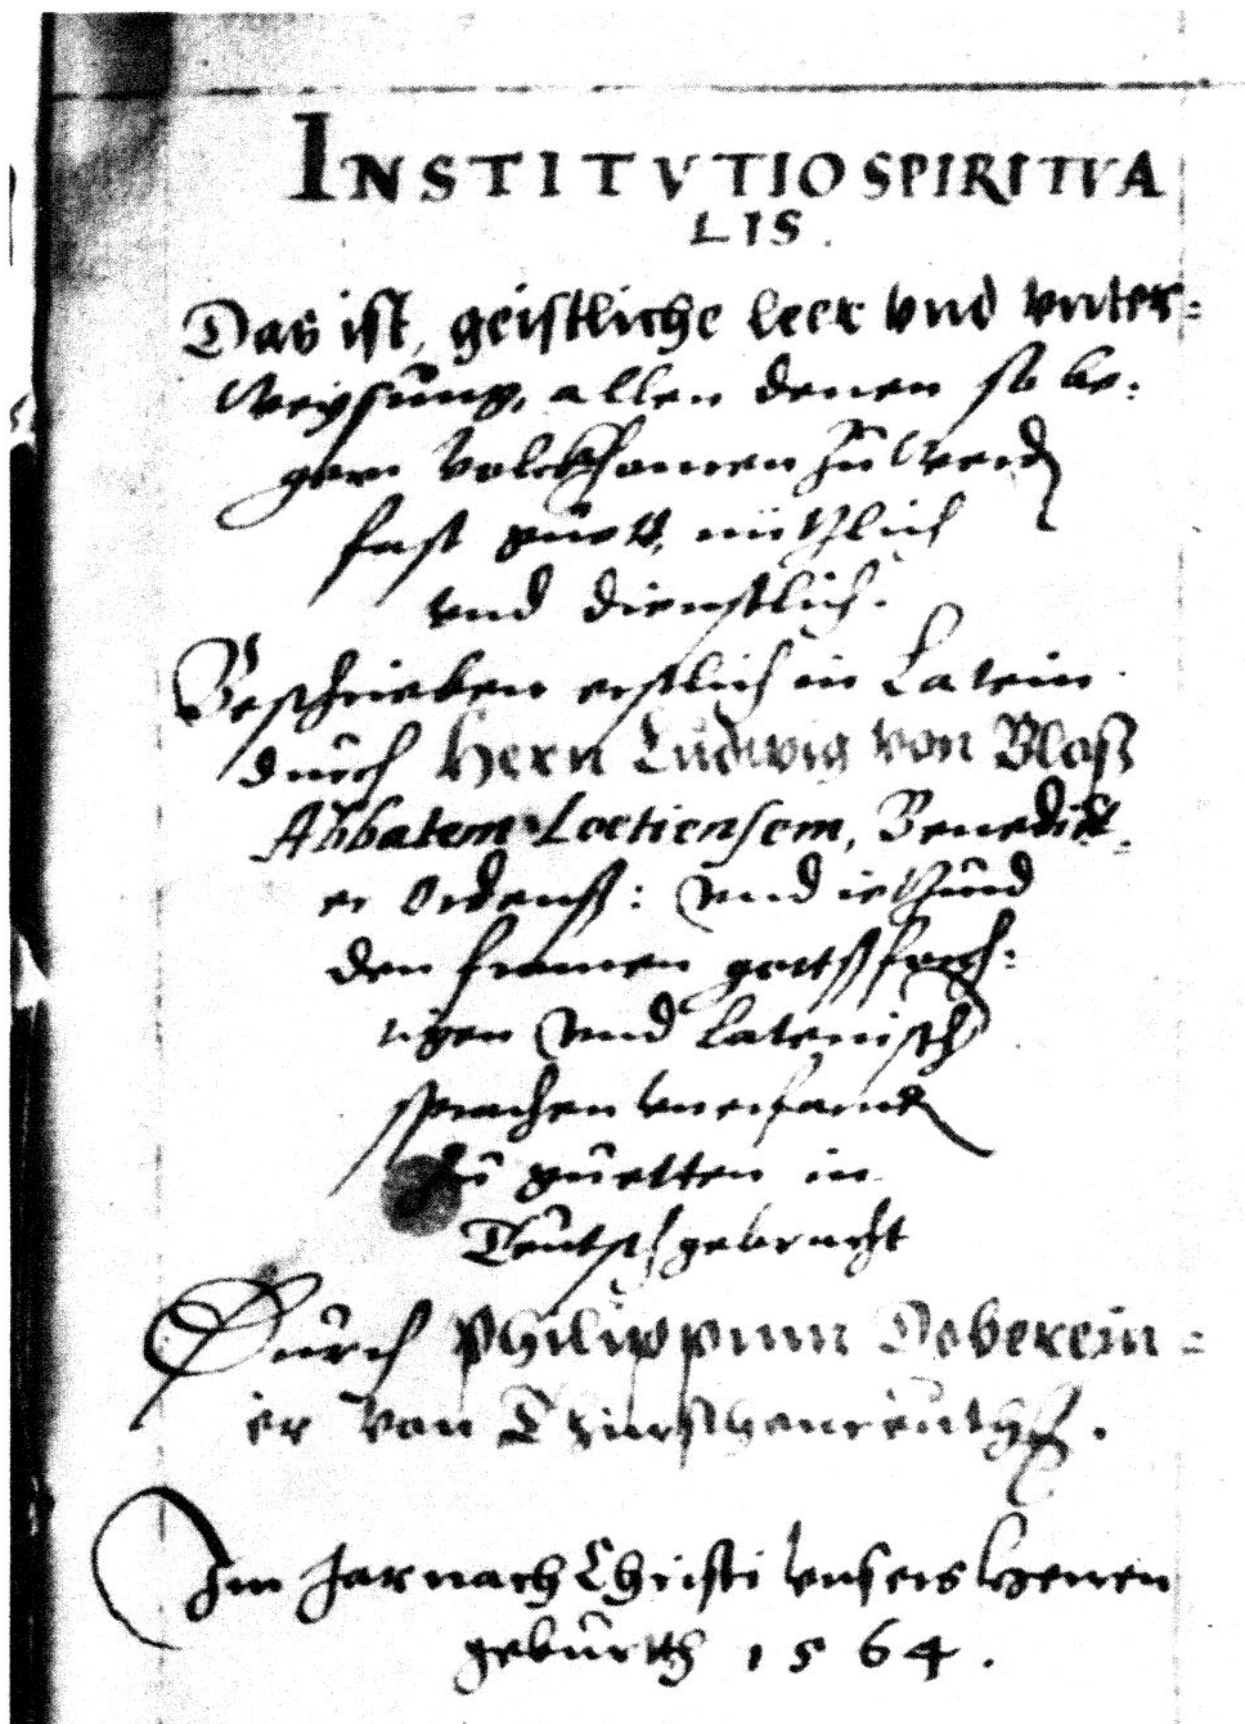 INSTITVTIO SPIRITVA
LIS.
Das ist, geistliche leer vnd vnter=
weysung, allen denen so be:
gern volckhomen zů werdn
fast guett, nützlich
vnd dienstlich.
Beschrieben erstlich in Latein
durch Hern Ludwig von Bloß
Abbatem Loetiensem, Benedict=
er Ordenß: vnd ietzund
den fromen gottßforch:
tigen vnd Latenisch
sprachen vnerfarnen
zů guetten in
Teutsch gebracht
Durch Philippum Doberein=
er von Thürschenreuth.
Im Jar nach Christi vnsers Herren
geburth 1564.